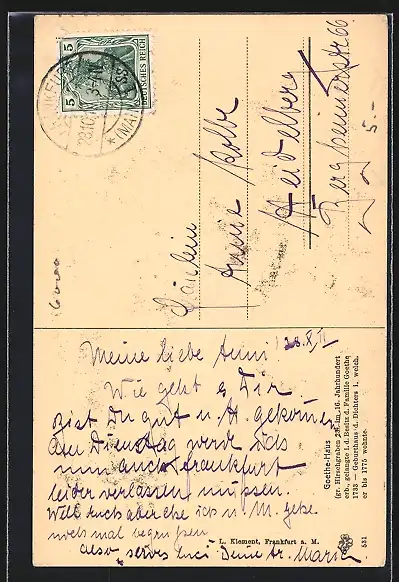 5
DEUTSCHES REICH
5
FRANKFURT
(MAIN)
28.10.
Fräulein
Kolbe
Heidelberg
Bergheimerstr 66
5.-
Meine liebe Anni! 28.X.
Wie geht es Dir
Bist Du gut n. H gekommen
Dienstag werde ich
nun auch Frankfurt
leider verlassen müssen.
Will Euch aber ehe ich n. M. gehe
noch mal begrüssen
also Deine tr. Marie
Goethe-Haus
(gr. Hirschgraben 23) im 16. Jahrhundert
erb., gelangte i. d. Besitz d. Familie Goethe
1733 — Geburthaus d. Dichters 1. welch.
er bis 1775 wohnte.
L. Klement, Frankfurt a. M.
531